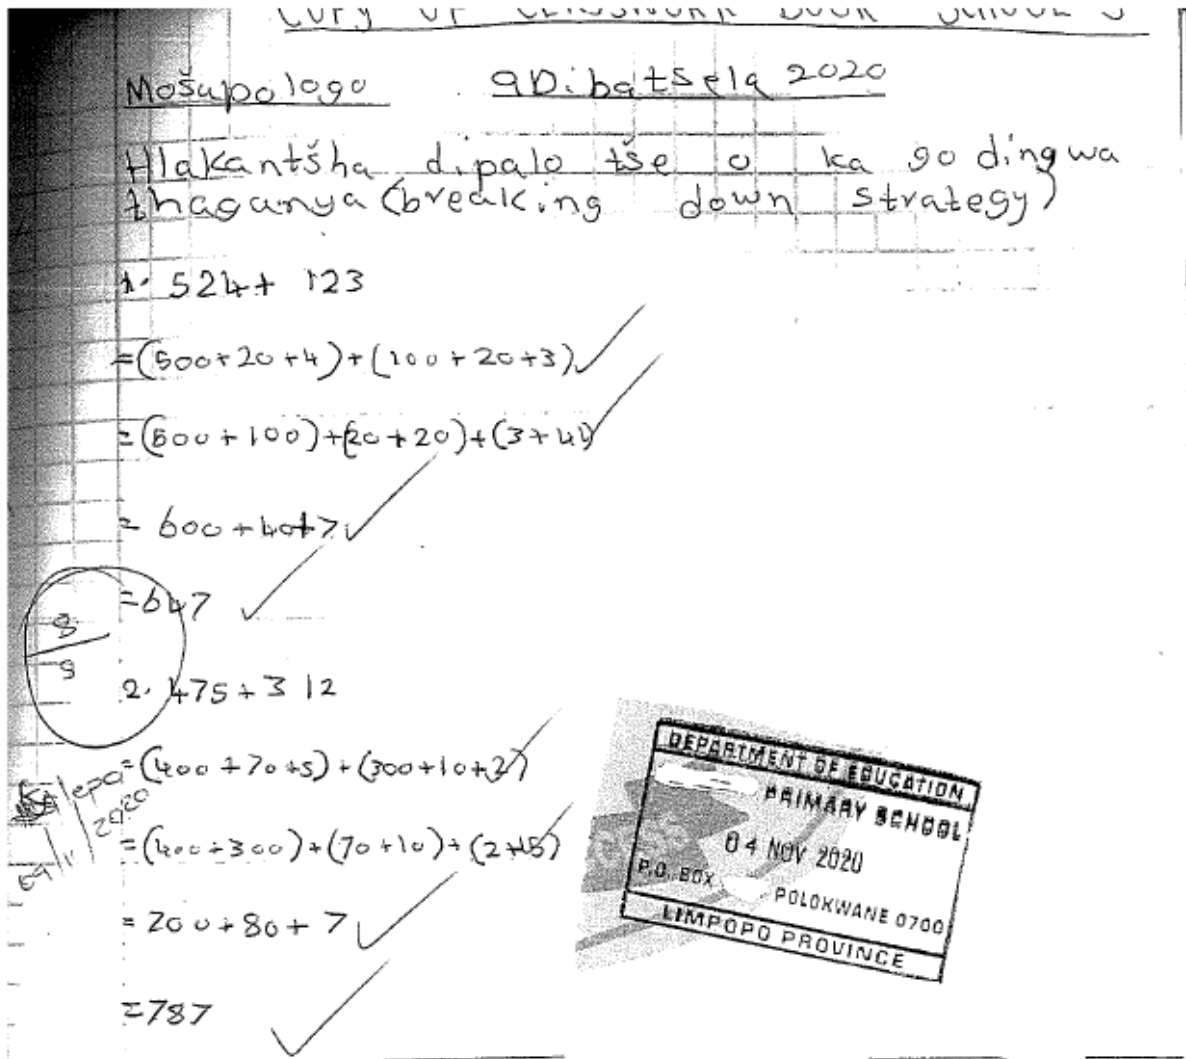 COPY OF CLASSWORK BOOK SCHOOL
Mošupologo 9 Dibatsela 2020
Hlakantšha dipalo tše o ka go dingwa
thaganya (breaking down strategy)
1. 524+ 123
=(500+20+4)+(100+20+3)
=(500+100)+(20+20)+(3+4)
= 600+40+7
=647
8
8
2. 475+312
=(400+70+5)+(300+10+2)
=(400+300)+(70+10)+(2+5)
= 700+80+7
=787
09/11/2020
DEPARTMENT OF EDUCATION
PRIMARY SCHOOL
04 NOV 2020
P.O. BOX POLOKWANE 0700
LIMPOPO PROVINCE